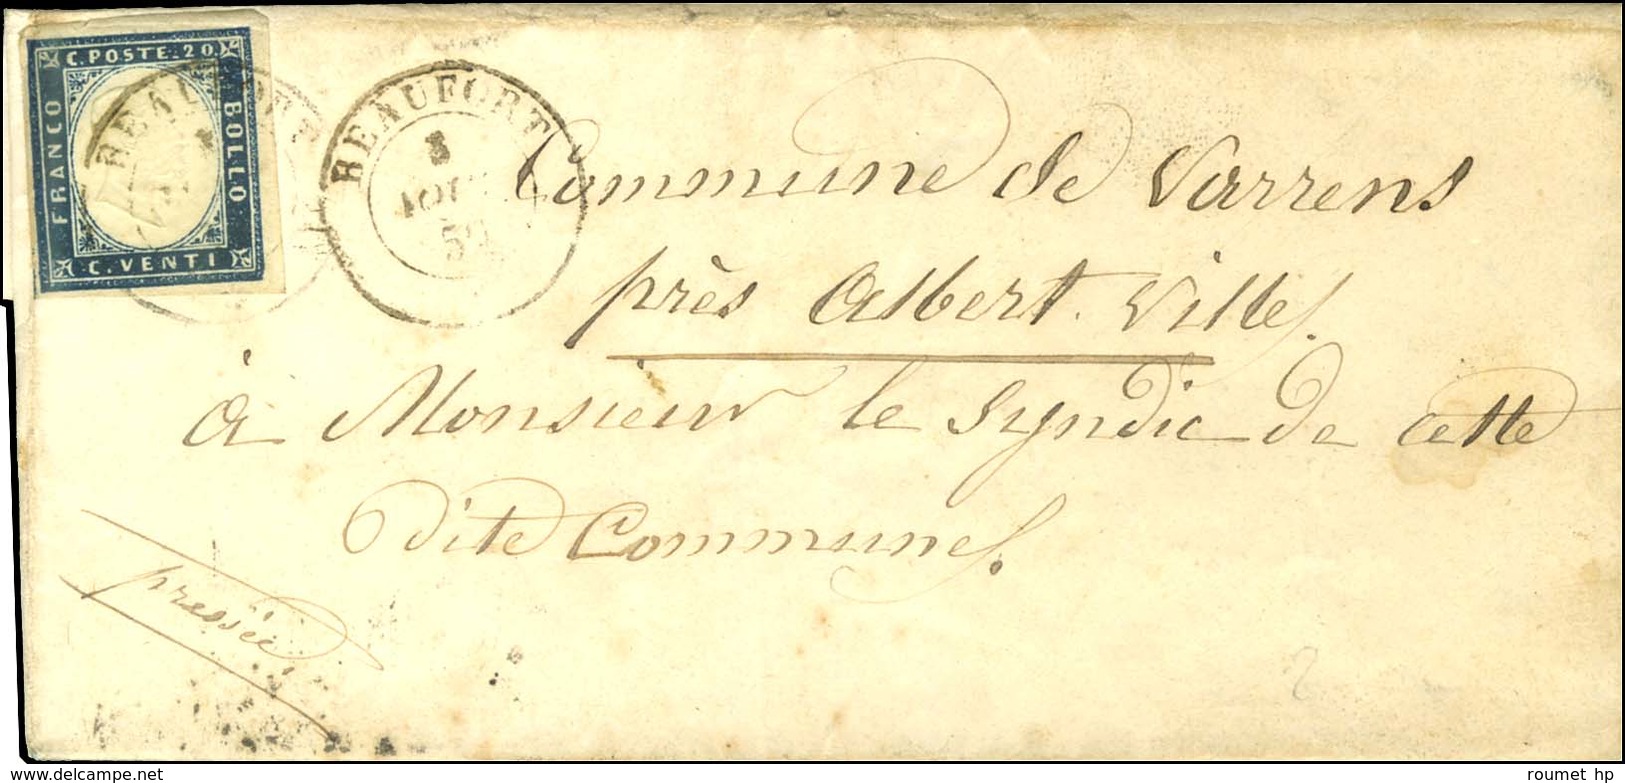 C. POSTE. 20.
FRANCO
BOLLO
C. VENTI
BEAUFORT
BEAUFORT
8
AOUT
Commune de Varrens
près Albert Ville
à Monsieur le Syndic de cette
dite Commune
pressée
2
www.delcampe.net
roumet hp